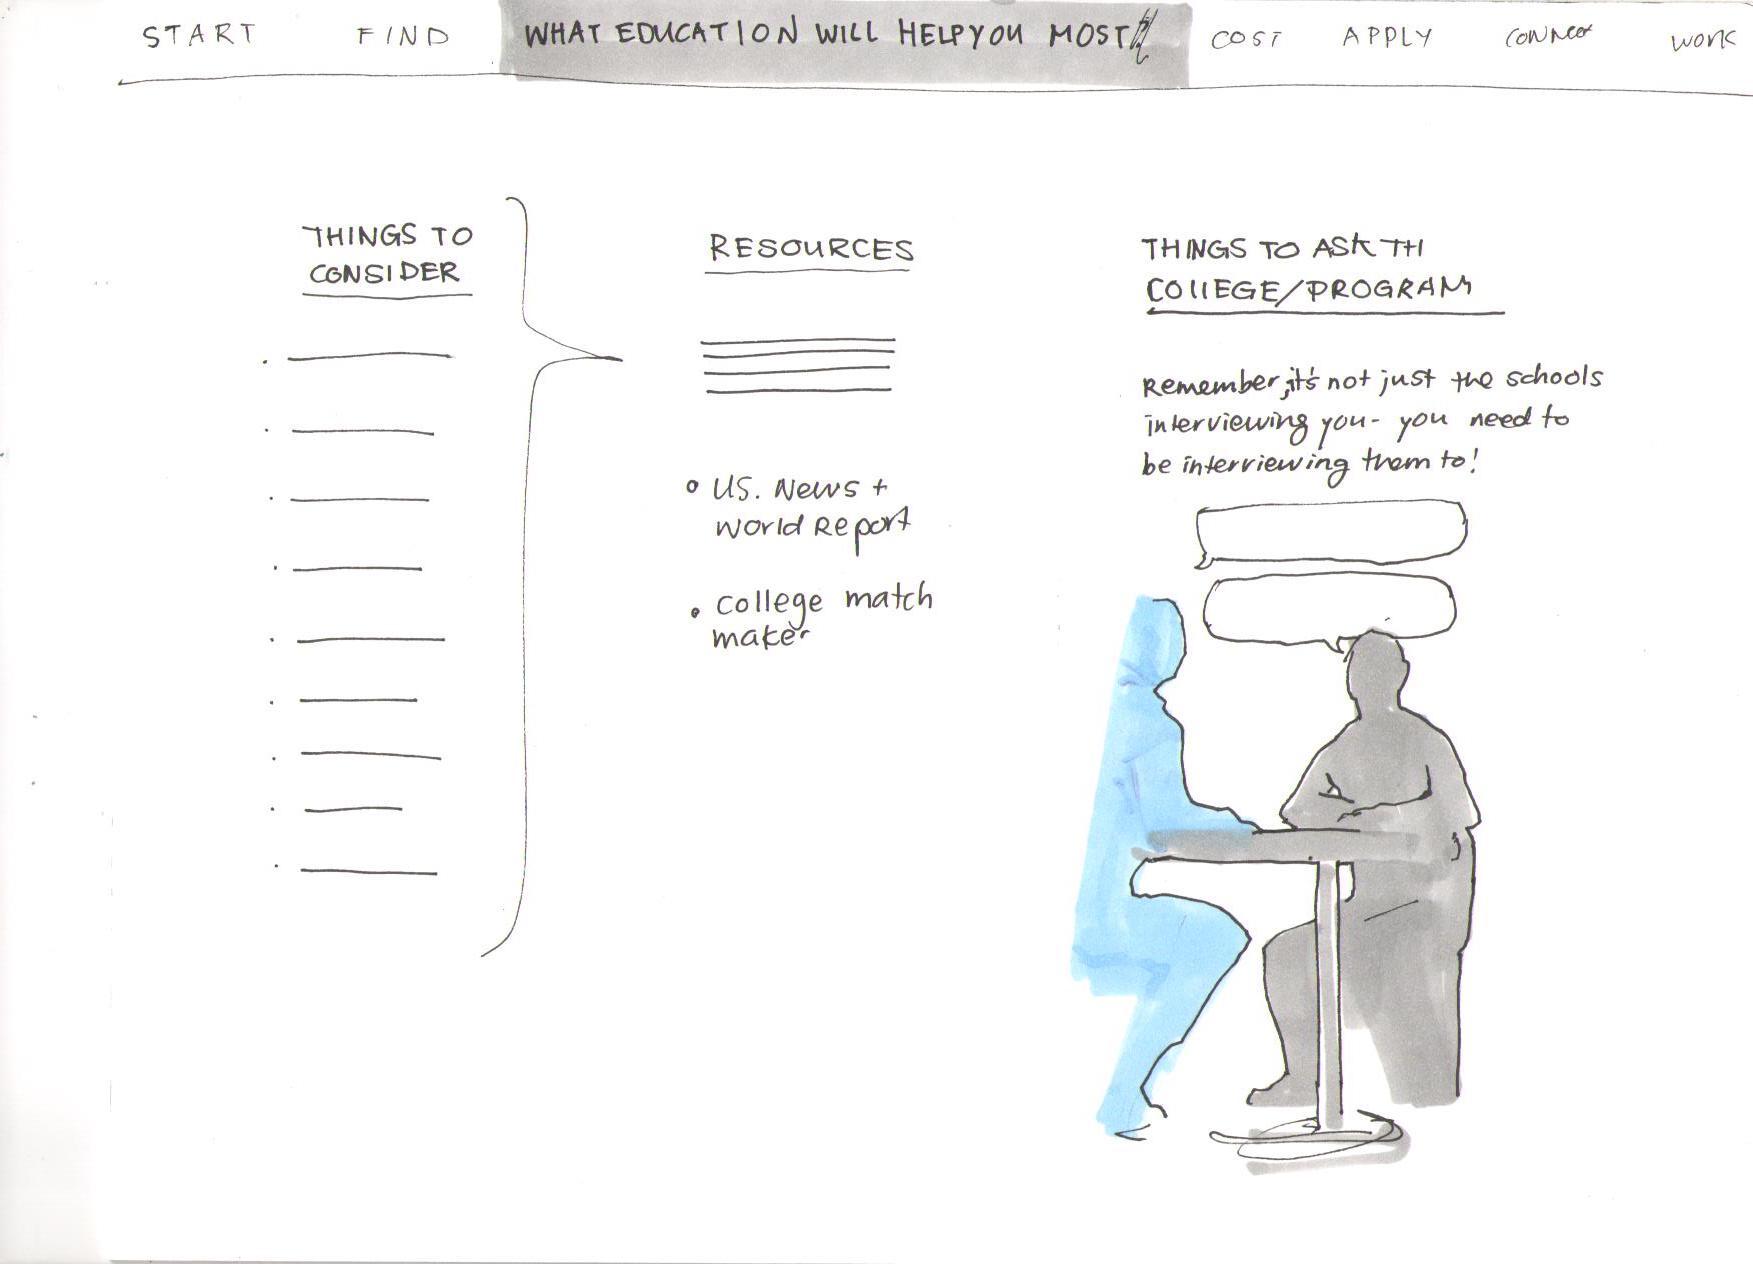 START FIND WHAT EDUCATION WILL HELP YOU MOST? COST APPLY CONNECT WORK
THINGS TO
CONSIDER
RESOURCES
U.S. News +
World Report
College match
maker
THINGS TO ASK TH
COLLEGE/PROGRAM
Remember, it's not just the schools
interviewing you- you need to
be interviewing them to!